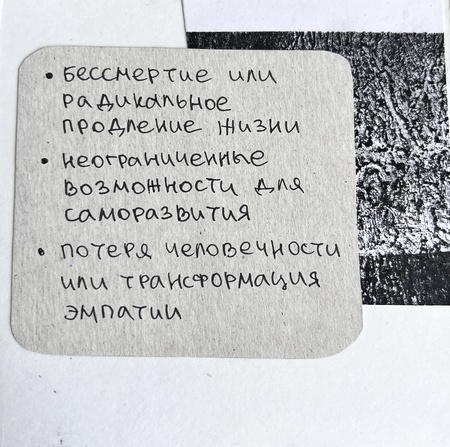 • бессмертие или
радикальное
продление жизни
• неограниченные
возможности для
саморазвития
• потеря человечности
или трансформация
эмпатии